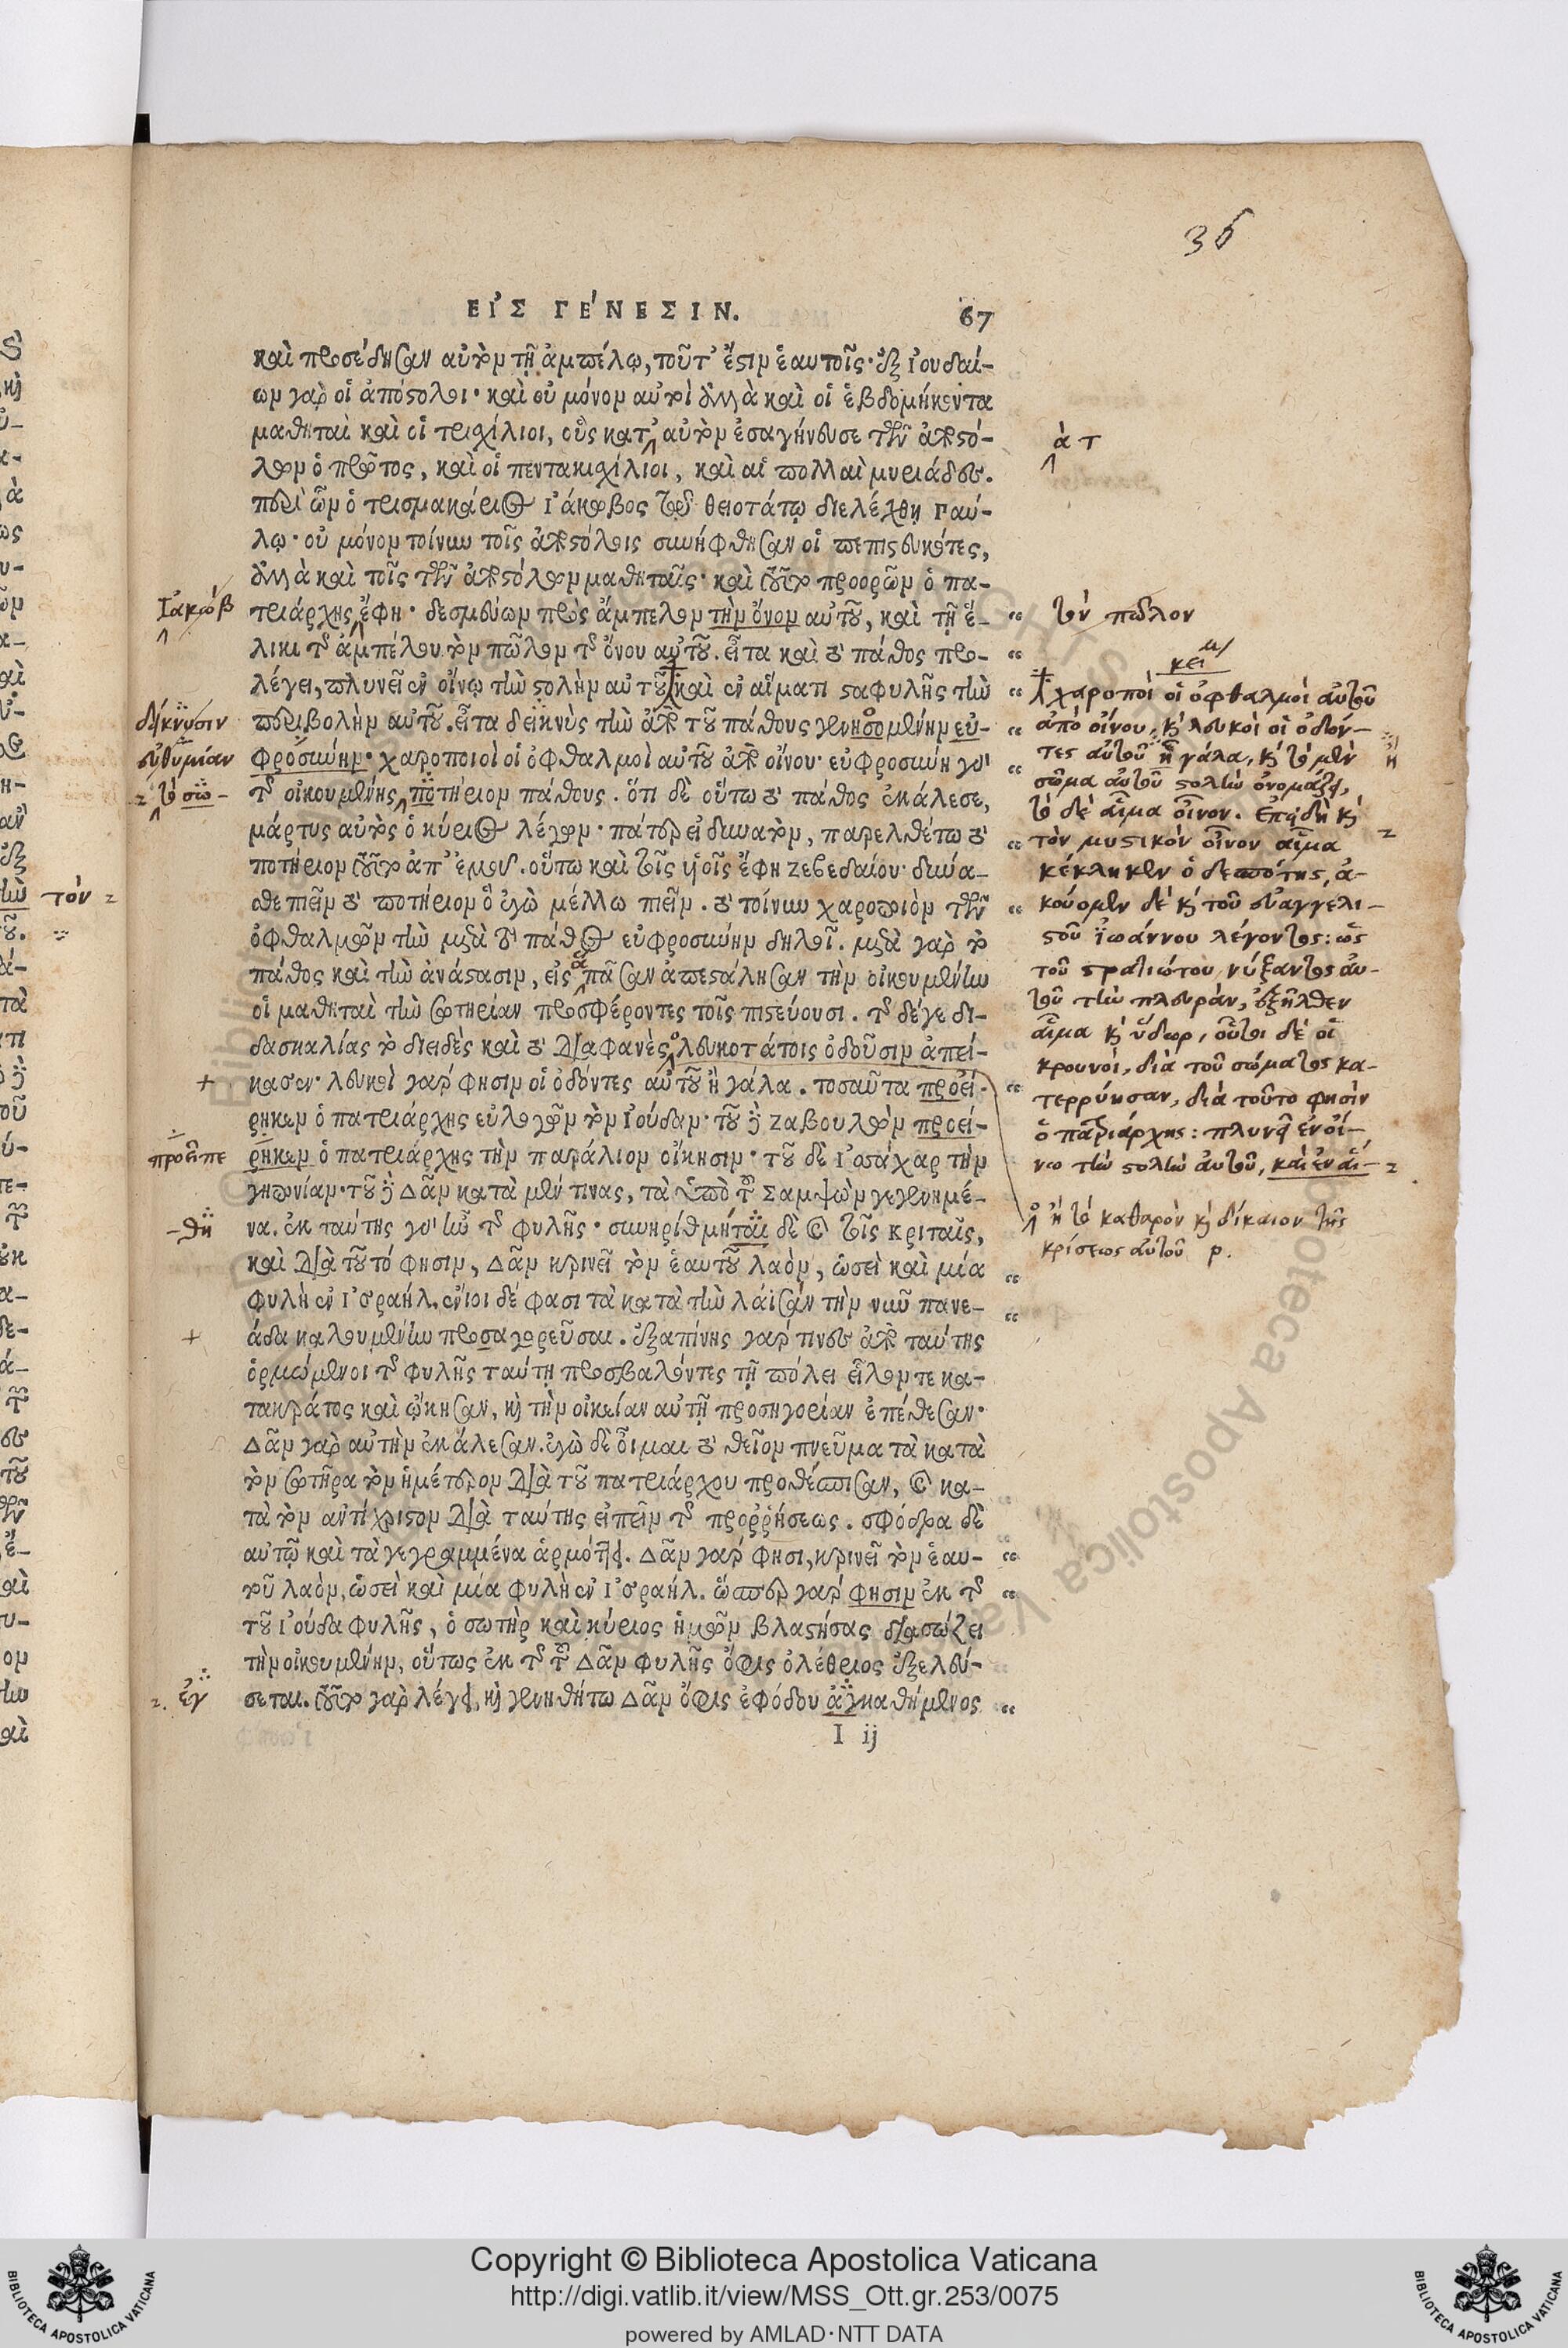 36
ΕΙ᾿Σ ΓΕ´ΝΕΣΙΝ. 67
καὶ προσέδησαν αὐτὸν τῇ ἀμπέλῳ, τοῦτ' ἔστιν ἑαυτοῖς· ἐξ Ἰουδαί-
ων γὰρ οἱ ἀπόστολοι· καὶ οὐ μόνον αὐτοὶ ἀλλὰ καὶ οἱ ἑβδομήκοντα
μαθηταὶ καὶ οἱ τρισχίλιοι, οὓς κατ' αὐτὸν ἐσαγήνευσε τῶν ἀποστό-
λων ὁ πρῶτος, καὶ οἱ πεντακισχίλιοι, καὶ αἱ πολλαὶ μυριάδες.
περὶ ὧν ὁ τρισμακάριος Ἰάκωβος τῷ θειοτάτῳ διελέχθη Παύ-
λῳ· οὐ μόνον τοίνυν τοῖς ἀποστόλοις συνήφθησαν οἱ πεπιστευκότες,
ἀλλὰ καὶ τοῖς τῶν ἀποστόλων μαθηταῖς· καὶ τοῦτο προορῶν ὁ πα-
τριάρχης ἔφη· δεσμεύων πρὸς ἄμπελον τὴν ὄνον αὐτοῦ, καὶ τῇ ἕ-
λικι τῆς ἀμπέλου τὸν πῶλον τῆς ὄνου αὐτοῦ. εἶτα καὶ τὸ πάθος προ-
λέγει, πλυνεῖ ἐν οἴνῳ τὴν στολὴν αὐτοῦ καὶ ἐν αἵματι σταφυλῆς τὴν
περιβολὴν αὐτοῦ. εἶτα δεικνὺς τὴν ἀπὸ τοῦ πάθους γενησομένην εὐ-
φροσύνην· χαροποιοὶ οἱ ὀφθαλμοὶ αὐτοῦ ἀπὸ οἴνου· εὐφροσύνη γὰρ
τῆς οἰκουμένης, ποτήριον πάθους. ὅτι δὲ οὕτω τὸ πάθος ἐκάλεσε,
μάρτυς αὐτὸς ὁ κύριος λέγων· πάτερ εἰ δυνατὸν, παρελθέτω τὸ
ποτήριον τοῦτο ἀπ' ἐμοῦ. οὕτω καὶ τοῖς υἱοῖς ἔφη Ζεβεδαίου· δύνα-
σθε πιεῖν τὸ ποτήριον ὃ ἐγὼ μέλλω πιεῖν. τὸ τοίνυν χαροποιὸν τῶν
ὀφθαλμῶν τὴν μετὰ τὸ πάθος εὐφροσύνην δηλοῖ. μετὰ γὰρ τὸ
πάθος καὶ τὴν ἀνάστασιν, εἰς πᾶσαν ἀπεστάλησαν τὴν οἰκουμένην
οἱ μαθηταὶ τὴν σωτηρίαν προσφέροντες τοῖς πιστεύουσι. τῆς δέ γε δι-
δασκαλίας τὸ διειδὲς καὶ τὸ διαφανὲς λευκοτάτοις ὀδοῦσιν ἀπεί-
κασεν· λευκοὶ γάρ φησιν οἱ ὀδόντες αὐτοῦ ἢ γάλα. τοσαῦτα προεί-
ρηκεν ὁ πατριάρχης εὐλογῶν τὸν Ἰούδαν· τοῦ δὲ Ζαβουλὼν προεί-
ρηκεν ὁ πατριάρχης τὴν παράλιον οἴκησιν· τοῦ δὲ Ἰσάχαρ τὴν
γηπονίαν· τοῦ δὲ Δὰν κατὰ μέν τινας, τὰ ὑπὸ τοῦ Σαμψὼν γεγενημέ-
να. ἐκ ταύτης γὰρ ἦν τῆς φυλῆς· συνηρίθμηται δὲ καὶ τοῖς κριταῖς,
καὶ διὰ τοῦτό φησιν, Δὰν κρινεῖ τὸν ἑαυτοῦ λαὸν, ὡσεὶ καὶ μία
φυλὴ ἐν Ἰσραήλ. ἔνιοι δέ φασι τὰ κατὰ τὴν Λάϊσάν τὴν νῦν πανε-
άδα καλουμένην προσαγορεῦσαι. ἐξαπίνης γάρ τινες ἀπὸ ταύτης
ὁρμώμενοι τῆς φυλῆς ταύτῃ προσβαλόντες τῇ πόλει εἷλόν τε κα-
τακράτος καὶ ᾤκησαν, καὶ τὴν οἰκείαν αὐτῇ προσηγορίαν ἐπέθεσαν·
Δὰν γὰρ αὐτὴν ἐκάλεσαν. ἐγὼ δὲ οἶμαι τὸ θεῖον πνεῦμα τὰ κατὰ
τὸν σωτῆρα τὸν ἡμέτερον διὰ τοῦ πατριάρχου προθέσπισαν, καὶ κα-
τὰ τὸν ἀντίχριστον διὰ ταύτης εἰπεῖν τῆς προῤῥήσεως. σφόδρα δὲ
αὐτῷ καὶ τὰ γεγραμμένα ἁρμόττει. Δὰν γάρ φησι, κρινεῖ τὸν ἑαυ-
τοῦ λαὸν, ὡσεὶ καὶ μία φυλὴ ἐν Ἰσραήλ. ὥσπερ γάρ φησιν ἐκ τῆς
τοῦ Ἰούδα φυλῆς, ὁ σωτὴρ καὶ κύριος ἡμῶν βλαστήσας διασώζει
τὴν οἰκουμένην, οὕτως ἐκ τῆς τοῦ Δὰν φυλῆς ὄφις ὀλέθριος ἐξελεύ-
σεται. τοῦτο γὰρ λέγει, καὶ γενηθήτω Δὰν ὄφις ἐφόδου ἀγκαθήμενος
I ij
τὸν
Ἰακώβ
δείκνυσιν
εὐθυμίαν
τὸ σῶ-
προεῖπε
-θη
ἐγ
ὰ τ
τὸν πῶλον
κει
χαροποὶ οἱ ὀφθαλμοὶ αὐτοῦ
ἀπὸ οἴνου, καὶ λευκοὶ οἱ ὀδόν-
τες αὐτοῦ ἢ γάλα, καὶ τὸ μὲν
ἢ
σῶμα αὐτοῦ στολὴν ὀνομάζει,
τὸ δὲ αἷμα οἶνον. ἐπειδὴ καὶ
τὸν μυστικὸν οἶνον αἷμα
κέκληκεν ὁ δεσπότης, ἀ-
κούομεν δὲ καὶ τοῦ εὐαγγελι-
στοῦ Ἰωάννου λέγοντος: ὡς
τοῦ στρατιώτου νύξαντος αὐ-
τοῦ τὴν πλευρὰν, ἐξῆλθεν
αἷμα καὶ ὕδωρ, οὗτοι δὲ οἱ
κρουνοὶ, διὰ τοῦ σώματος κα-
τερρύησαν, διὰ τοῦτο φησὶν
ὁ πατριάρχης: πλυνεῖ ἐν οἴ-
νῳ τὴν στολὴν αὐτοῦ, καὶ ἐν αἵ-
ἢ τὸ καθαρὸν καὶ δίκαιον τῆς
κρίσεως αὐτοῦ ρ.
Copyright © Biblioteca Apostolica Vaticana
http://digi.vatlib.it/view/MSS_Ott.gr.253/0075
powered by AMLAD·NTT DATA
BIBLIOTECA APOSTOLICA VATICANA
BIBLIOTECA APOSTOLICA VATICANA